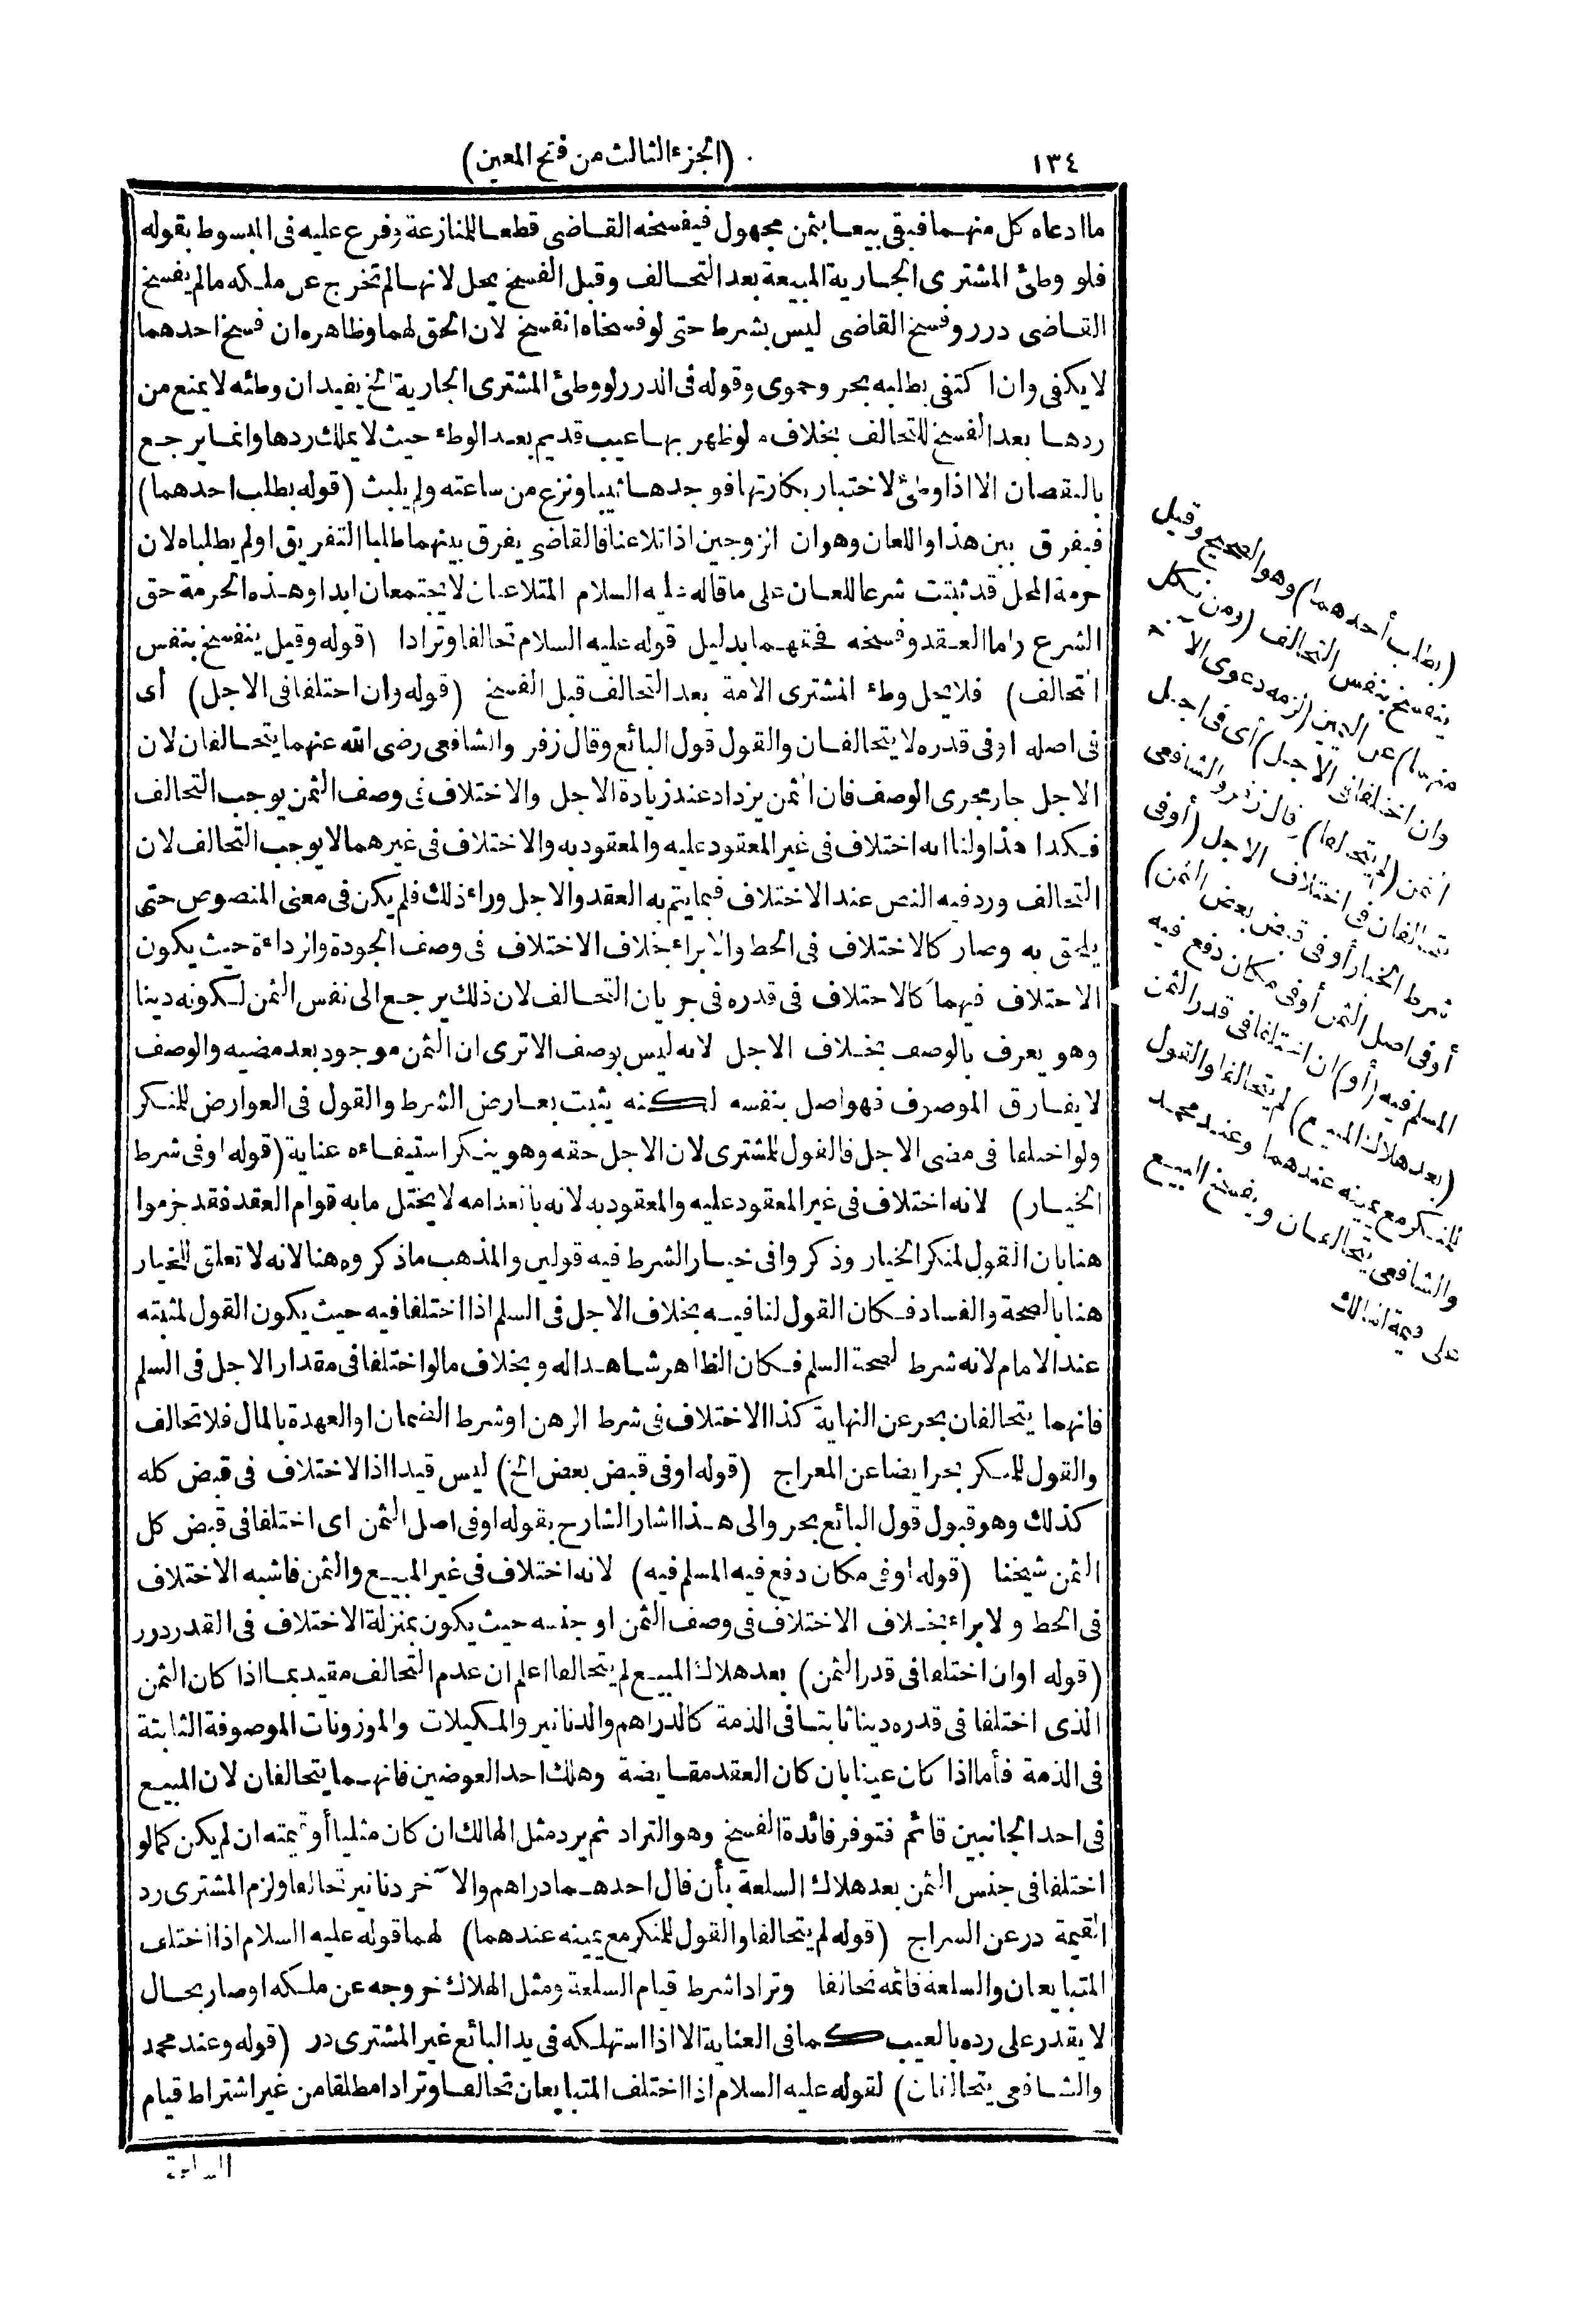 ١٣٤
(الجزء الثالث من فتح المعين)
ما ادعاه كل منهما فبقى بيعا بثمن مجهول فيفسخه القاضى قطعا للمنازعة وفرع عليه فى المبسوط بقوله
فلو وطئ المشترى الجارية المبيعة بعد التحالف وقبل الفسخ يحل لانها لم تخرج عن ملكه مالم يفسخ
القاضى درر وفسخ القاضى ليس بشرط حتى لو فسخاه انفسخ لان الحق لهما وظاهره ان فسخ احدهما
لا يكفى وان اكتفى بطلبه بحر وحموى وقوله فى الدرر لو وطئ المشترى الجارية الخ يفيد ان وطئه لا يمنع من
ردها بعد الفسخ للتحالف بخلاف لو ظهر بها عيب قديم بعد الوطء حيث لا يملك ردها وانما يرجع
بالنقصان الا اذا وطئ لاختبار بكارتها فوجدها ثيبا ونزع من ساعته ولم يلبث (قوله بطلب احدهما)
فيفرق بين هذا واللعان وهو ان الزوجين اذا تلاعنا فالقاضى يفرق بينهما طلبا التفريق او لم يطلباه لان
حرمة المحل قد ثبتت شرعا للعان على ما قاله عليه السلام المتلاعنان لا يجتمعان ابدا وهذه الحرمة حق
الشرع واما العقد وفسخه فحقهما بدليل قوله عليه السلام تحالفا وترادا (قوله وقيل ينفسخ بنفس
التحالف) فلا يحل وطء المشترى الامة بعد التحالف قبل الفسخ (قوله وان اختلفا فى الاجل) أى
فى اصله او فى قدره لا يتحالفان والقول قول البائع وقال زفر والشافعى رضى الله عنهما يتحالفان لان
الاجل جار مجرى الوصف فان الثمن يزداد عند زيادة الاجل والاختلاف فى وصف الثمن يوجب التحالف
فكذا هذا ولنا انه اختلاف فى غير المعقود عليه والمعقود به والاختلاف فى غيرهما لا يوجب التحالف لان
التحالف ورد فيه النص عند الاختلاف فيما يتم به العقد والاجل وراء ذلك فلم يكن فى معنى المنصوص حتى
يلحق به وصار كالاختلاف فى الحط والابراء خلاف الاختلاف فى وصف الجودة والرداءة حيث يكون
الاختلاف فيهما كالاختلاف فى قدره فى جريان التحالف لان ذلك يرجع الى نفس الثمن لكونه دينا
وهو يعرف بالوصف بخلاف الاجل لانه ليس بوصف الا ترى ان الثمن موجود بعد مضيه والوصف
لا يفارق الموصوف فهو اصل بنفسه لكنه يثبت بعارض الشرط والقول فى العوارض للمنكر
ولو اختلفا فى مضى الاجل فالقول للمشترى لان الاجل حقه وهو ينكر استيفاءه عناية (قوله او فى شرط
الخيار) لانه اختلاف فى غير المعقود عليه والمعقود به لانه بانعدامه لا يختل ما به قوام العقد فقد جزموا
هنا بان القول لمنكر الخيار وذكروا فى خيار الشرط فيه قولين والمذهب ما ذكروه هنا لانه لا تعلق للخيار
هنا بالصحة والفساد فكان القول لنافيه بخلاف الاجل فى السلم اذا اختلفا فيه حيث يكون القول لمثبته
عند الامام لانه شرط لصحة السلم فكان الظاهر شاهدا له وبخلاف ما لو اختلفا فى مقدار الاجل فى السلم
فانهما يتحالفان بحر عن النهاية كذا الاختلاف فى شرط الرهن او شرط الضمان او العهدة بالمال فلا تحالف
والقول للمنكر بحر ايضا عن المعراج (قوله او فى قبض بعض الخ) ليس قيدا اذ الاختلاف فى قبض كله
كذلك وهو قبول قول البائع بحر والى هذا اشار الشارح بقوله او فى اصل الثمن اى اختلفا فى قبض كل
الثمن شيخنا (قوله او فى مكان دفع فيه المسلم فيه) لانه اختلاف فى غير المبيع والثمن فاشبه الاختلاف
فى الحط والابراء بخلاف الاختلاف فى وصف الثمن او جنسه حيث يكون بمنزلة الاختلاف فى القدر درر
(قوله او ان اختلفا فى قدر الثمن) بعد هلاك المبيع لم يتحالفا اعلم ان عدم التحالف مقيد بما اذا كان الثمن
الذى اختلفا فى قدره دينا ثابتا فى الذمة كالدراهم والدنانير والمكيلات والموزونات الموصوفة الثابتة
فى الذمة فأما اذا كان عينا بان كان العقد مقايضة وهلك احد العوضين فانهما يتحالفان لان المبيع
فى احد الجانبين قائم فتوفر فائدة الفسخ وهو التراد ثم يرد مثل الهالك ان كان مثليا أو قيمته ان لم يكن كما لو
اختلفا فى جنس الثمن بعد هلاك السلعة بأن قال احدهما دراهم والآخر دنانير تحالفا ولزم المشترى رد
القيمة در عن السراج (قوله لم يتحالفا والقول للمنكر مع يمينه عندهما) لهما قوله عليه السلام اذا اختلف
المتبايعان والسلعة قائمة تحالفا وترادا شرط قيام السلعة ومثل الهلاك خروجه عن ملكه او صار بحال
لا يقدر على رده بالعيب كما فى العناية الا اذا استهلكه فى يد البائع غير المشترى در (قوله وعند محمد
والشافعى يتحالفان) لقوله عليه السلام اذا اختلف المتبايعان تحالفا وترادا مطلقا من غير اشتراط قيام
السلعة
(بطلب أحدهما) وهو الصحيح وقيل
ينفسخ بنفس التحالف (ومن نكل
منهما) عن اليمين (لزمه دعوى الآخر
وان اختلفا فى الاجل) أى فى اجل
الثمن (لم يتحالفا) وقال زفر والشافعى
يتحالفان فى اختلاف الاجل (أو فى
شرط الخيار أو فى قبض بعض الثمن)
أو فى اصل الثمن أو فى مكان دفع فيه
المسلم فيه (أو) ان اختلفا فى قدر الثمن
(بعد هلاك المبيع) لم يتحالفا والقول
للمنكر مع يمينه عندهما وعند محمد
والشافعى يتحالفان ويفسخ البيع
على قيمة الهالك